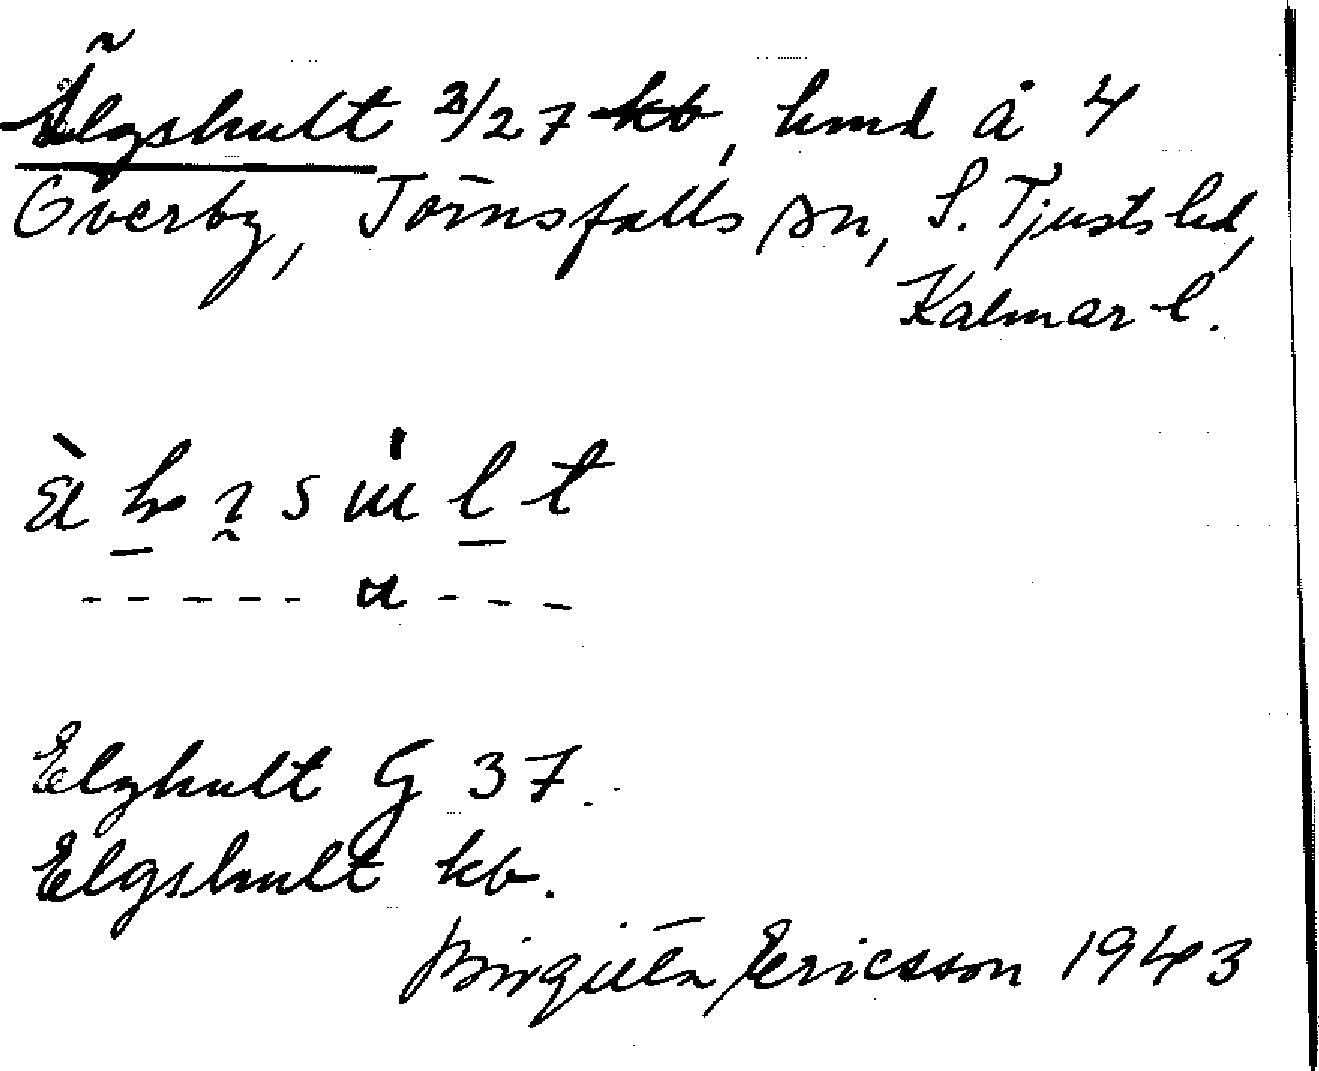 Älgshult 3/27 kb, hmd å 4
Överby, Törnsfalls sn, S. Tjusts hd,
Kalmar l.
Elghult G 37.
Elgshult kb.
Birgitta Ericsson 1943